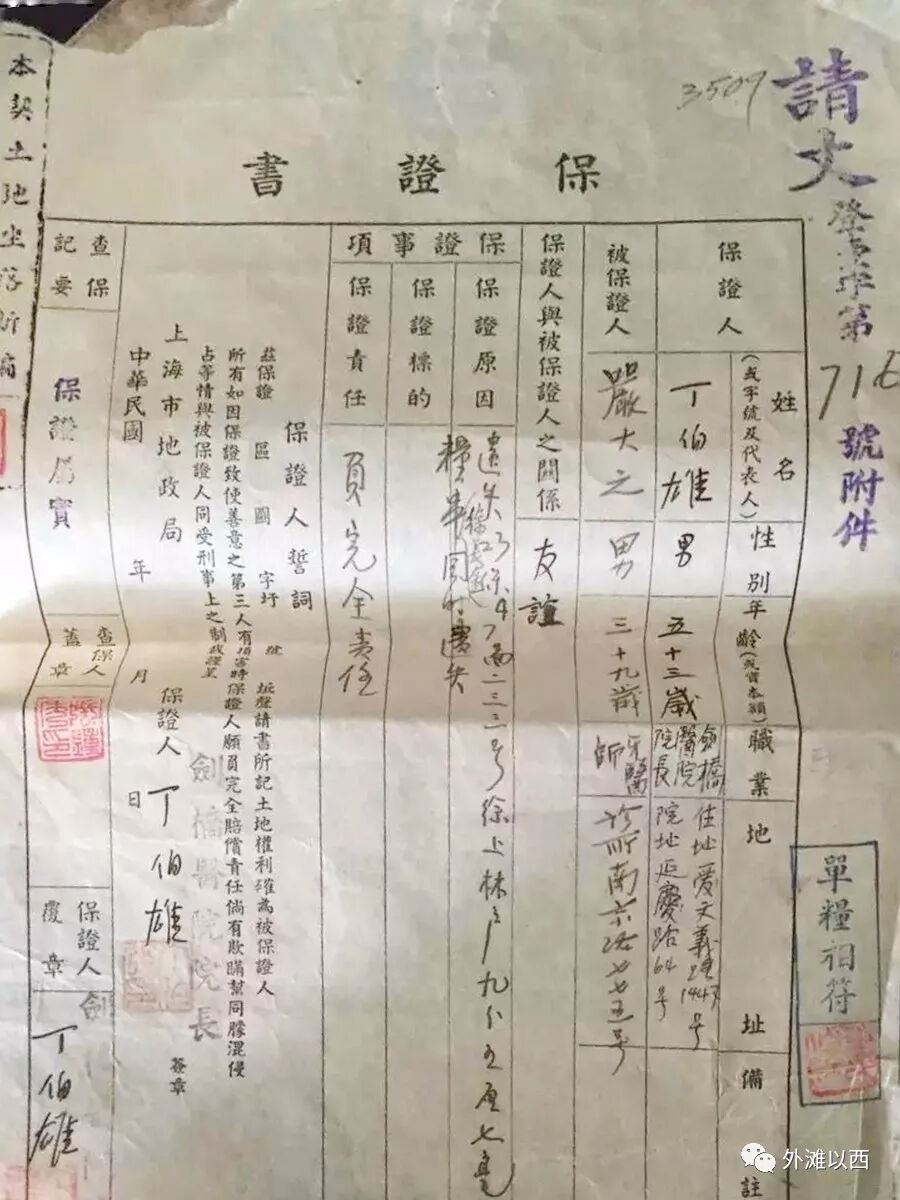 3509
請文
第
號附件
單糧相符
保證書
姓名
(或字號及代表人)
性別
年齡(或資本額)
職業
地址
備註
保證人
丁伯雄
男
五十三歲
劍橋醫院院長
住址愛文義路1447號
院址延慶路64號
被保證人
嚴大之
男
三十九歲
牙醫師
診所南京路七七五号
保證人與被保證人之關係
友誼
保證事項
保證原因
遺失
号徐上林戶九分九厘七毫
糧串同時遺失
保證標的
保證責任
負完全責任
保證人誓詞
茲保證 區 圖 字圩 號 坵聲請書所記土地權利確為被保證人
所有如因保證致使善意之第三人有損害時保證人願負完全賠償責任倘有欺瞞幫同朦混侵
占等情與被保證人同受刑事上之制裁謹呈
上海市地政局
保證人 丁伯雄 簽章
劍橋醫院院長
中華民國 年 月 日
查保記要
保證屬實
查保人蓋章
保證人覆章
劍
丁伯雄
本契土地坐落
外滩以西